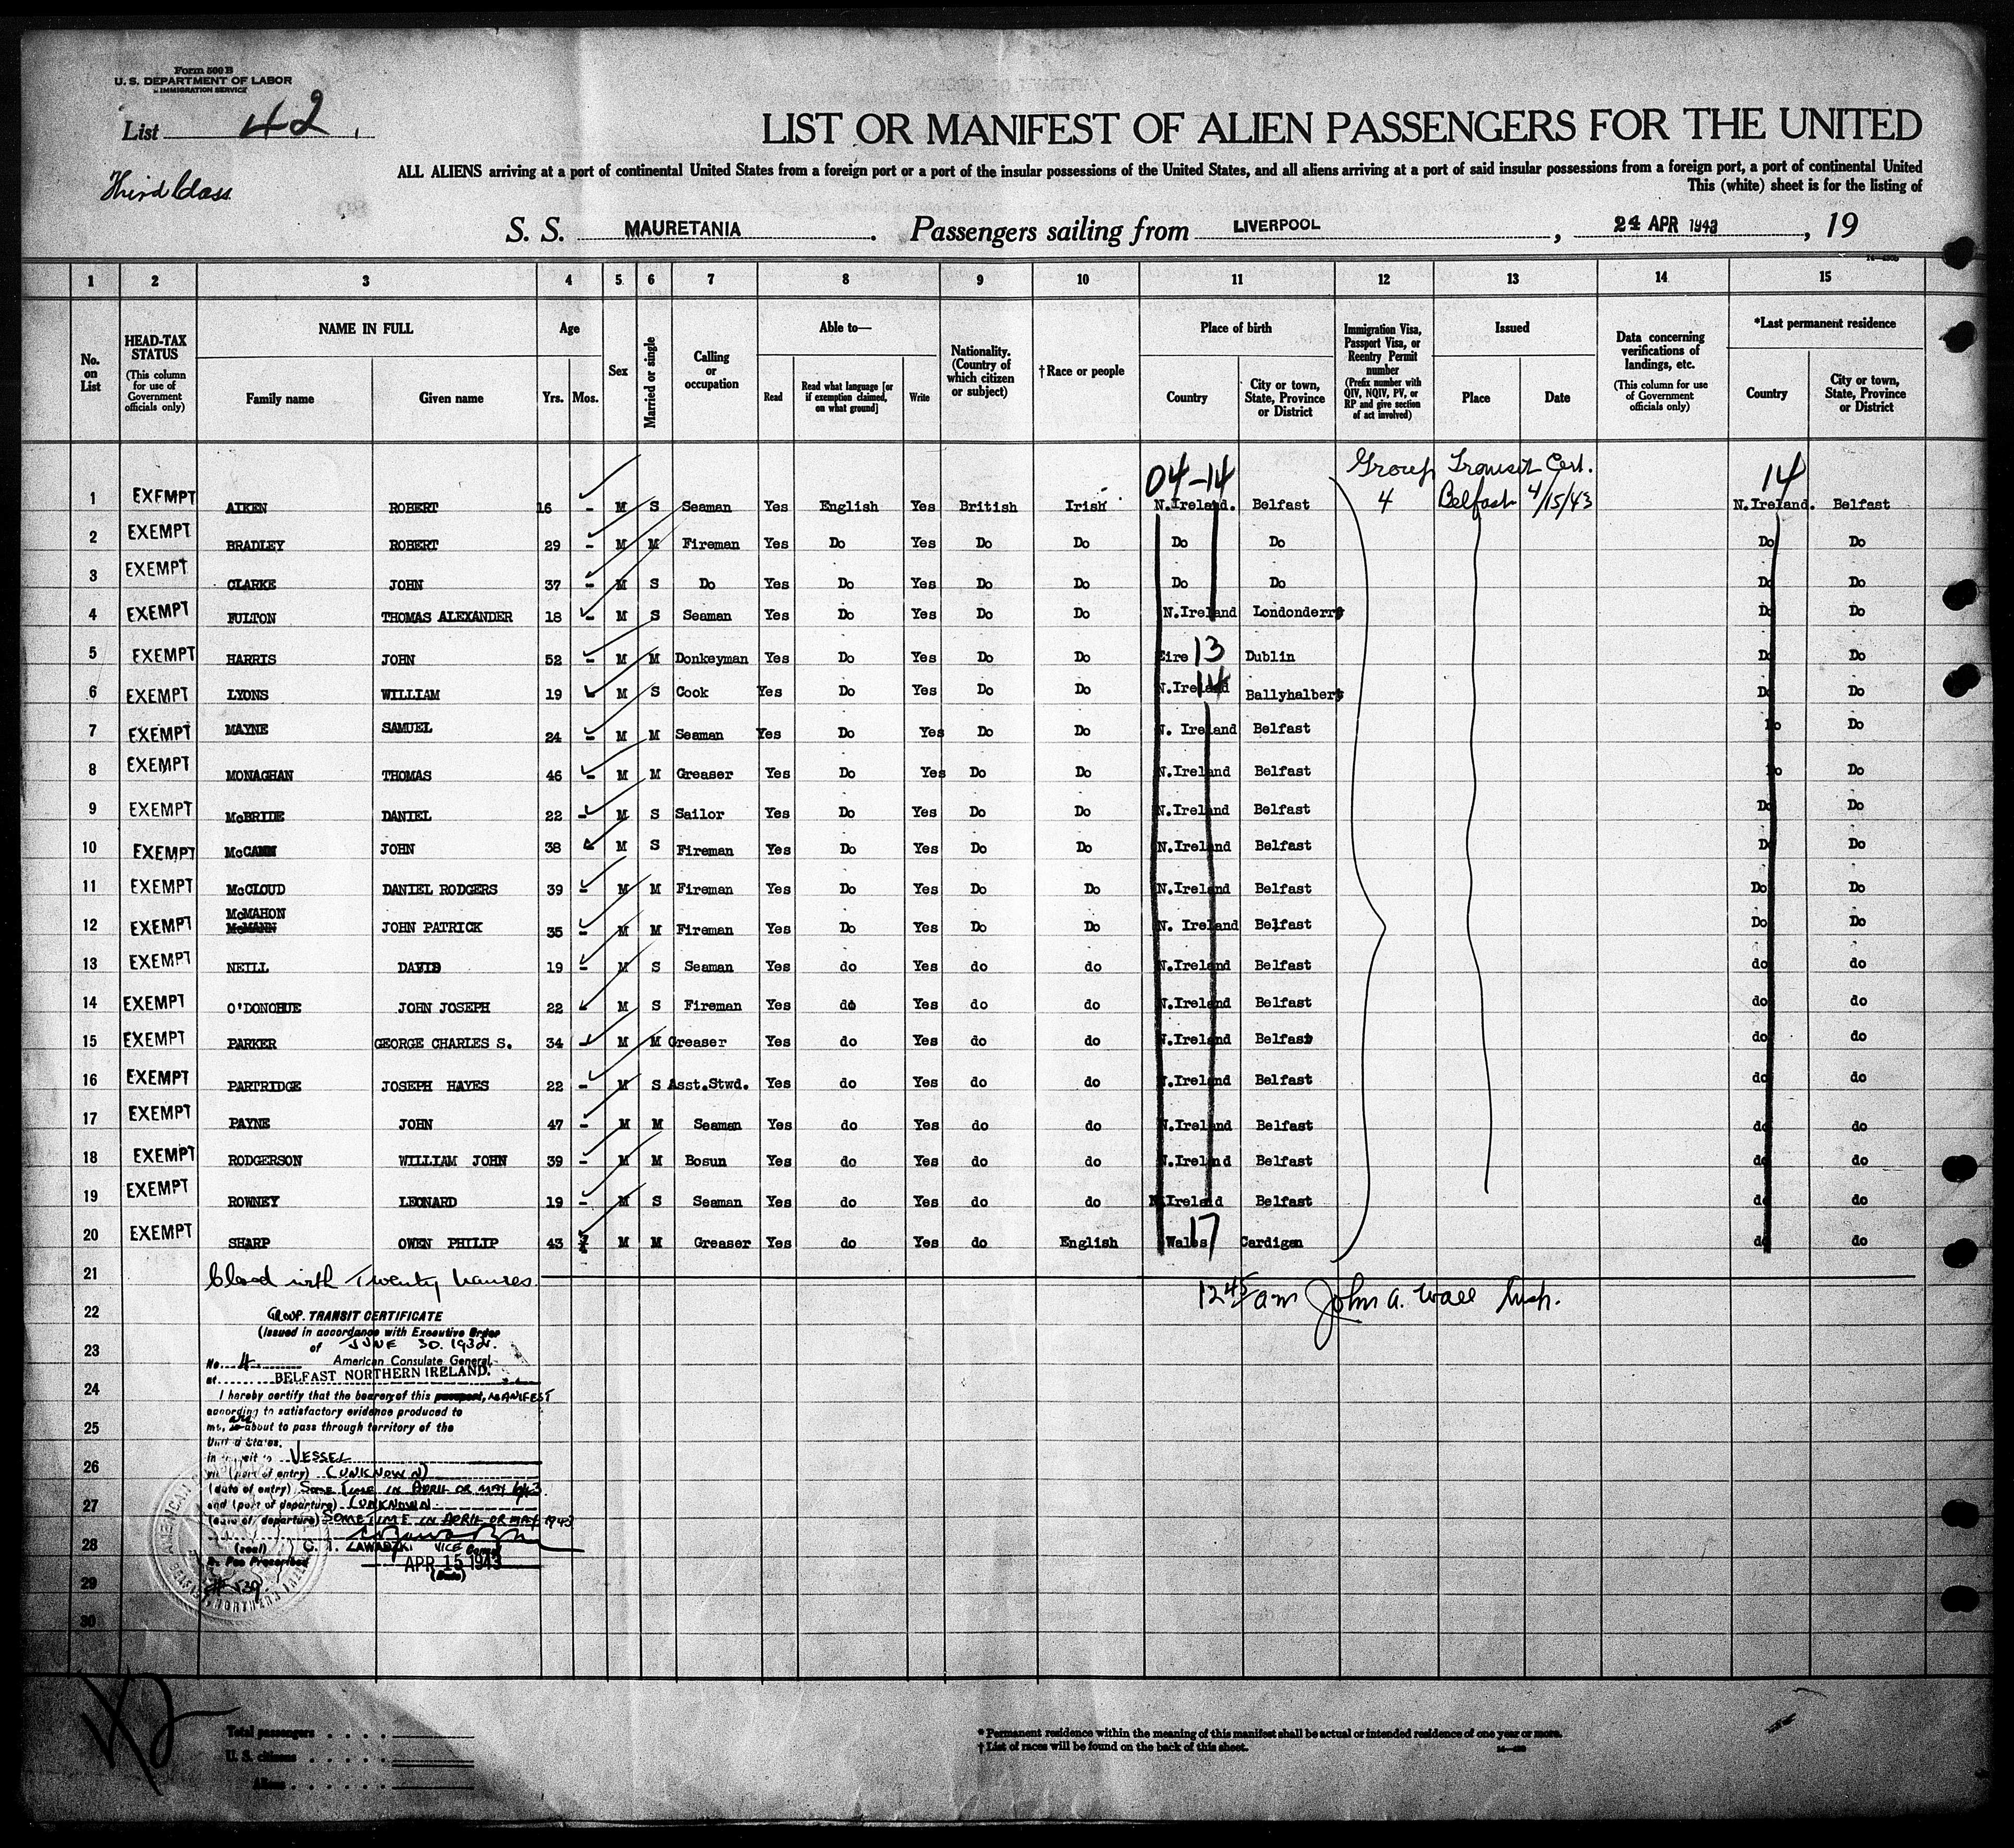 Form 500 B
U. S. DEPARTMENT OF LABOR
IMMIGRATION SERVICE
List 42
Third Class
LIST OR MANIFEST OF ALIEN PASSENGERS FOR THE UNITED
ALL ALIENS arriving at a port of continental United States from a foreign port or a port of the insular possessions of the United States, and all aliens arriving at a port of said insular possessions from a foreign port, a port of continental United
This (white) sheet is for the listing of
S. S. MAURETANIA. Passengers sailing from LIVERPOOL, 24 APR 1943, 19
1 2 3 4 5 6 7 8 9 10 11 12 13 14 15
No. on List
HEAD-TAX STATUS (This column for use of Government officials only)
NAME IN FULL
Family name Given name
Age
Yrs. Mos.
Sex
Married or single
Calling or occupation
Able to—
Read Read what language [or if exemption claimed, on what ground] Write
Nationality. (Country of which citizen or subject)
†Race or people
Place of birth
Country City or town, State, Province or District
Immigration Visa, Passport Visa, or Reentry Permit number (Prefix number with QIV, NQIV, PV, or RP and give section of act involved)
Issued
Place Date
Data concerning verifications of landings, etc. (This column for use of Government officials only)
*Last permanent residence
Country City or town, State, Province or District
04-14 Group Transit Cert. 14
1 EXEMPT AIKEN ROBERT 16 - M S Seaman Yes English Yes British Irish N.Ireland. Belfast 4 Belfast 4/15/43 N.Ireland. Belfast
2 EXEMPT BRADLEY ROBERT 29 - M M Fireman Yes Do Yes Do Do Do Do Do Do
3 EXEMPT CLARKE JOHN 37 - M S Do Yes Do Yes Do Do Do Do Do Do
4 EXEMPT FULTON THOMAS ALEXANDER 18 - M S Seaman Yes Do Yes Do Do N.Ireland Londonderry Do Do
5 EXEMPT HARRIS JOHN 52 - M M Donkeyman Yes Do Yes Do Do Eire 13 Dublin Do Do
6 EXEMPT LYONS WILLIAM 19 - M S Cook Yes Do Yes Do Do N.Ireland 14 Ballyhalbert Do Do
7 EXEMPT MAYNE SAMUEL 24 - M M Seaman Yes Do Yes Do Do N. Ireland Belfast Do Do
8 EXEMPT MONAGHAN THOMAS 46 - M M Greaser Yes Do Yes Do Do N.Ireland Belfast Do Do
9 EXEMPT McBRIDE DANIEL 22 - M S Sailor Yes Do Yes Do Do N.Ireland Belfast Do Do
10 EXEMPT McCANN JOHN 38 - M S Fireman Yes Do Yes Do Do N.Ireland Belfast Do Do
11 EXEMPT McCLOUD DANIEL RODGERS 39 - M M Fireman Yes Do Yes Do Do N.Ireland Belfast Do Do
McMAHON
12 EXEMPT McMANN JOHN PATRICK 35 - M M Fireman Yes Do Yes Do Do N. Ireland Belfast Do Do
13 EXEMPT NEILL DAVID 19 - M S Seaman Yes do Yes do do N.Ireland Belfast do do
14 EXEMPT O'DONOHUE JOHN JOSEPH 22 - M S Fireman Yes do Yes do do N.Ireland Belfast do do
15 EXEMPT PARKER GEORGE CHARLES S. 34 - M M Greaser Yes do Yes do do N.Ireland Belfast do do
16 EXEMPT PARTRIDGE JOSEPH HAYES 22 - M S Asst.Stwd. Yes do Yes do do N.Ireland Belfast do do
17 EXEMPT PAYNE JOHN 47 - M M Seaman Yes do Yes do do N.Ireland Belfast do do
18 EXEMPT RODGERSON WILLIAM JOHN 39 - M M Bosun Yes do Yes do do N.Ireland Belfast do do
19 EXEMPT ROWNEY LEONARD 19 - M S Seaman Yes do Yes do do N.Ireland Belfast do do
20 EXEMPT SHARP OWEN PHILIP 43 M M Greaser Yes do Yes do English Wales 17 Cardigan do do
21 Closed with Twenty names
12 45 am John A. Wall Insp.
22 GROUP. TRANSIT CERTIFICATE
(Issued in accordance with Executive Order
23 of JUNE 30. 1932.
No. 4. American Consulate General
at BELFAST NORTHERN IRELAND.
24 I hereby certify that the bearer of this passport, MANIFEST
according to satisfactory evidence produced to
25 me, is are about to pass through territory of the
United States.
in transit to VESSEL
26 via (port of entry) (UNKNOWN)
(date of entry) SOME TIME IN APRIL OR MAY 1943.
27 and (port of departure) (UNKNOWN
(date of departure) SOMETIME IN APRIL OR MAY 1943
28 (seal) C. T. ZAWADZKI VICE Consul
No Fee Prescribed APR 15 1943
29 (Date)
30
Total passengers . . . .
U. S. citizens . . . . .
Aliens . . . . . .
* Permanent residence within the meaning of this manifest shall be actual or intended residence of one year or more.
† List of races will be found on the back of this sheet.